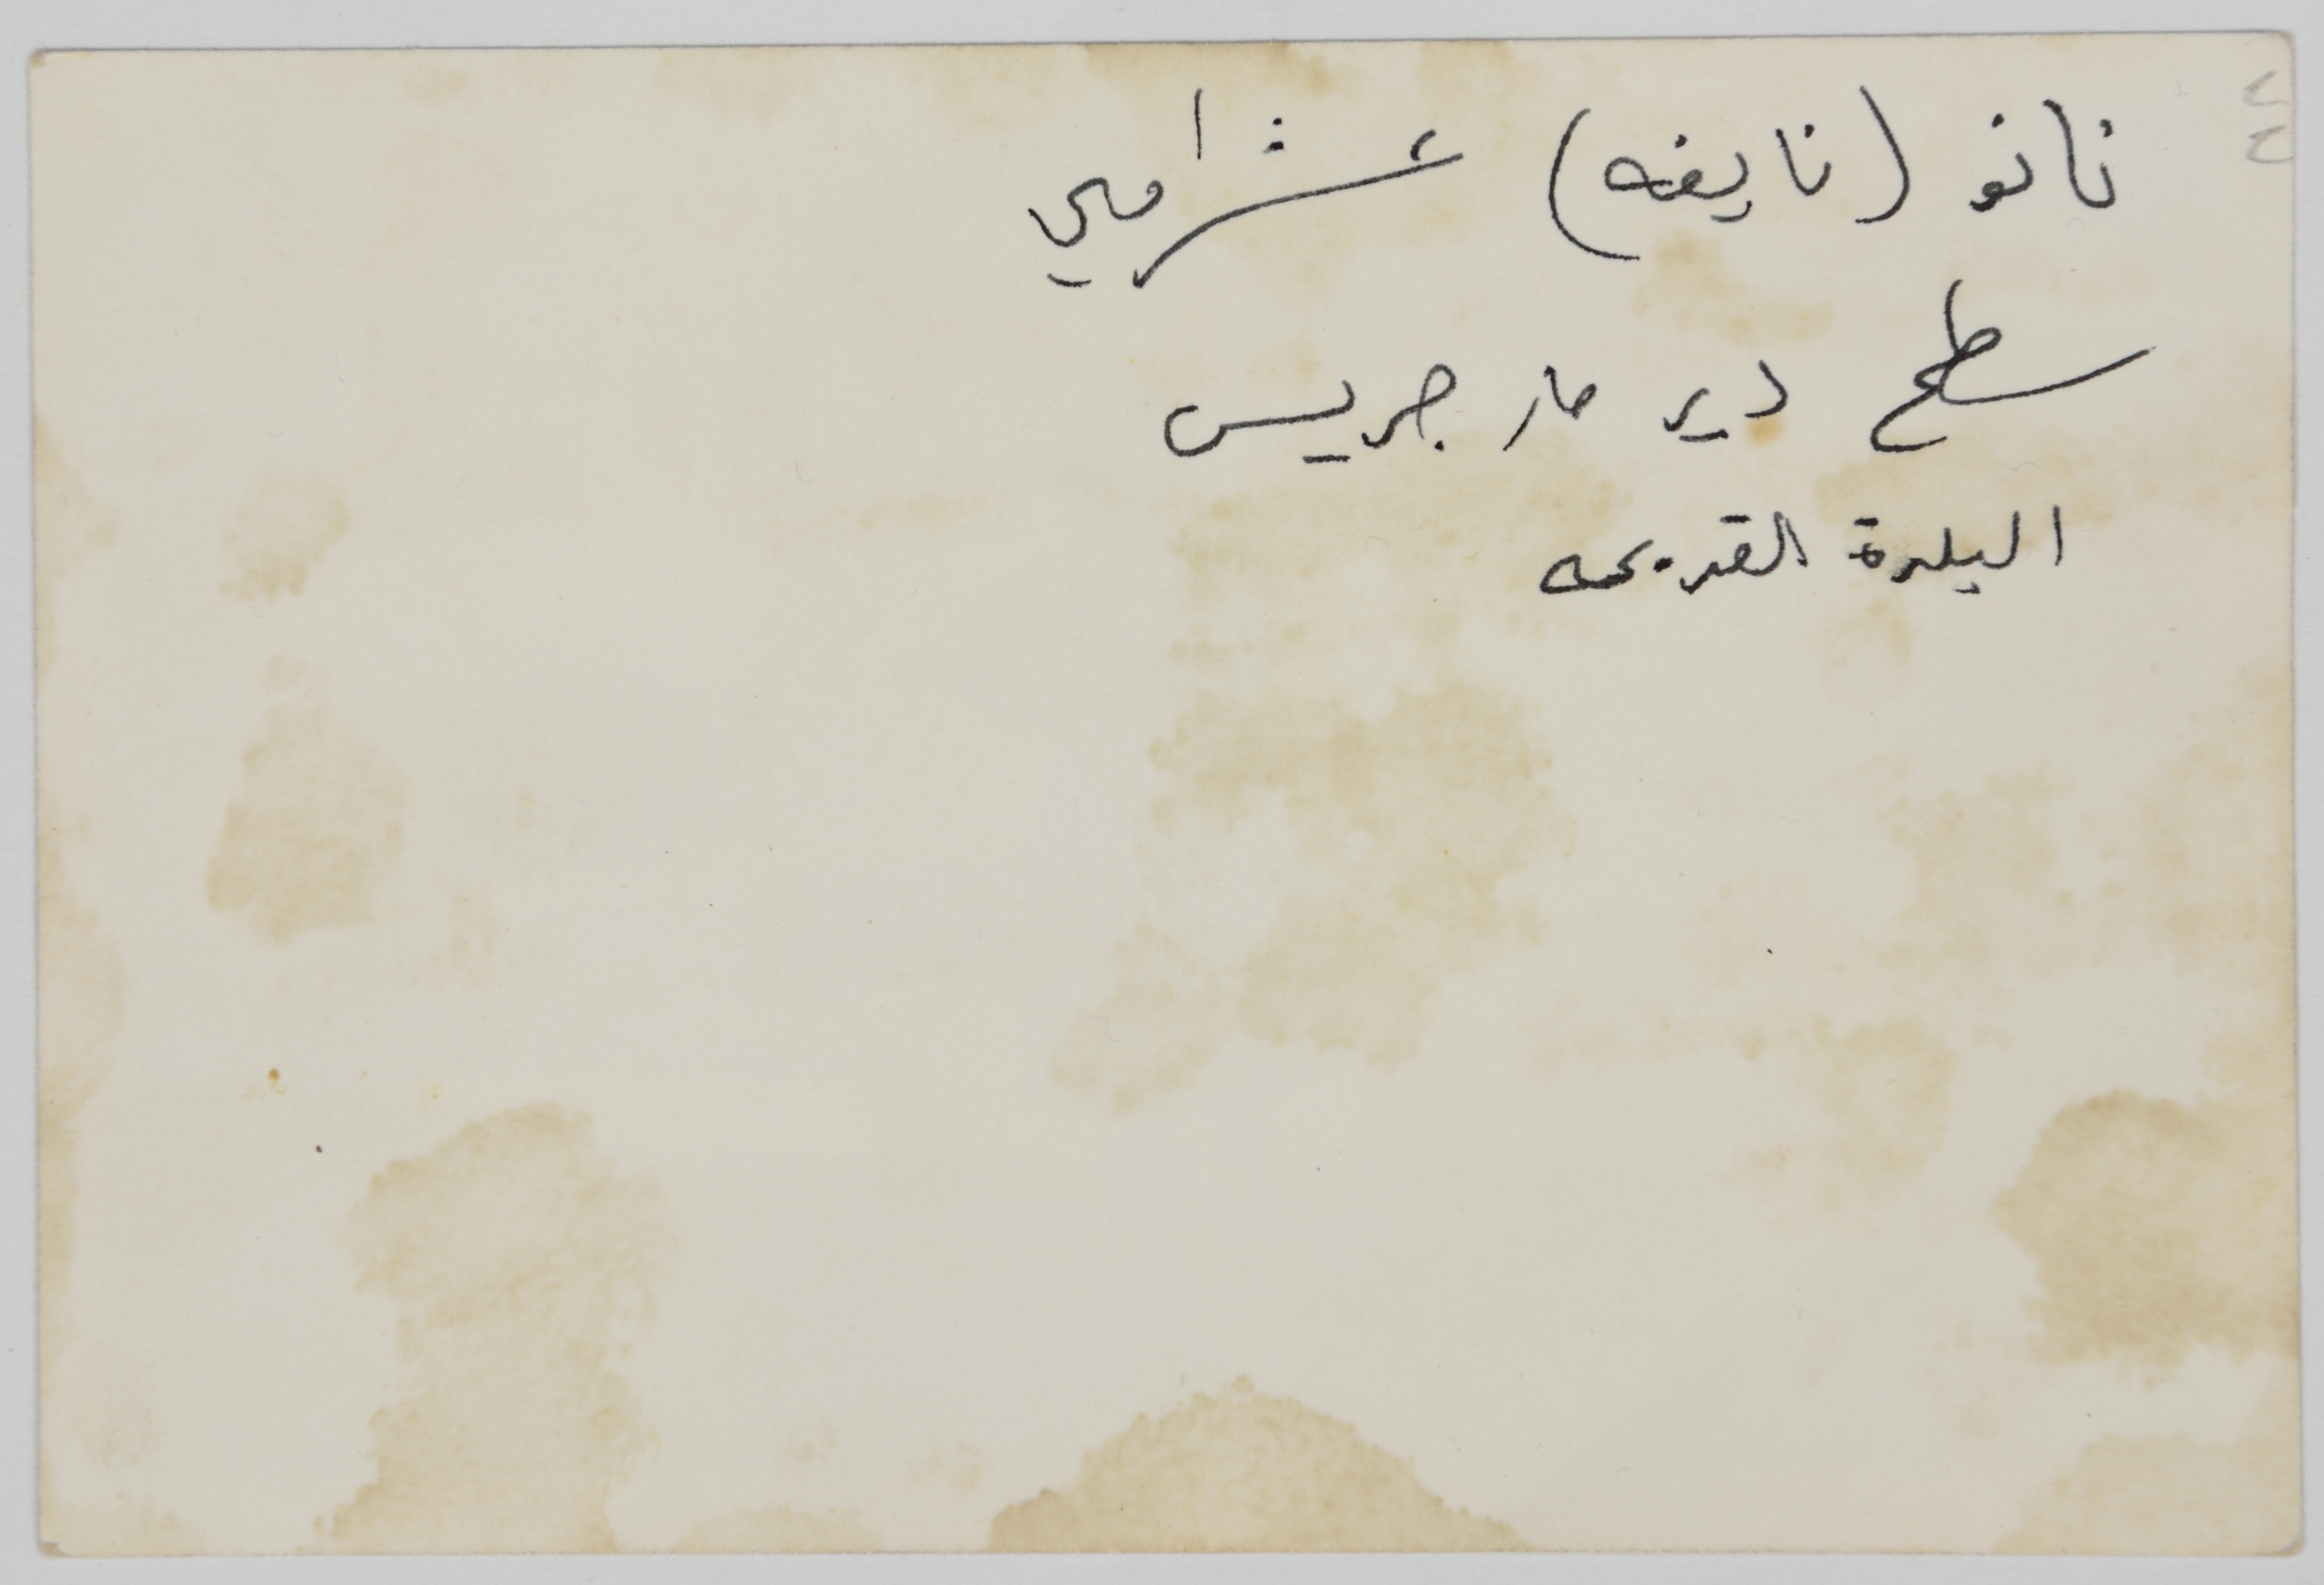 نانو (نايفه) عشراوي
سطح دير مار جريس
البلدة القديمه